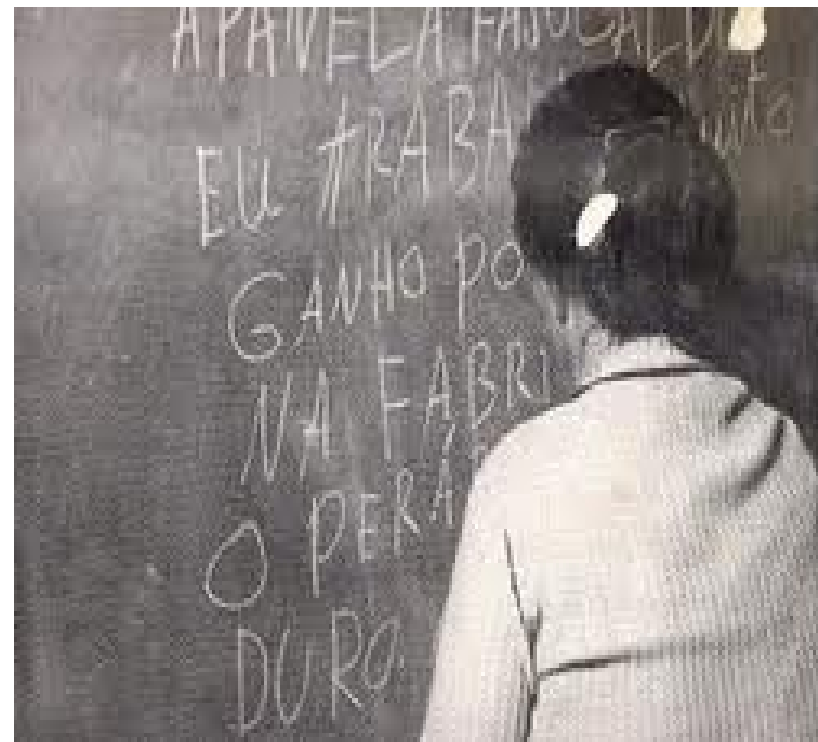 A PANELA FAS O CALDO
EU TRABA
GANHO PO
NA FABRI
O PERÁ
DURO